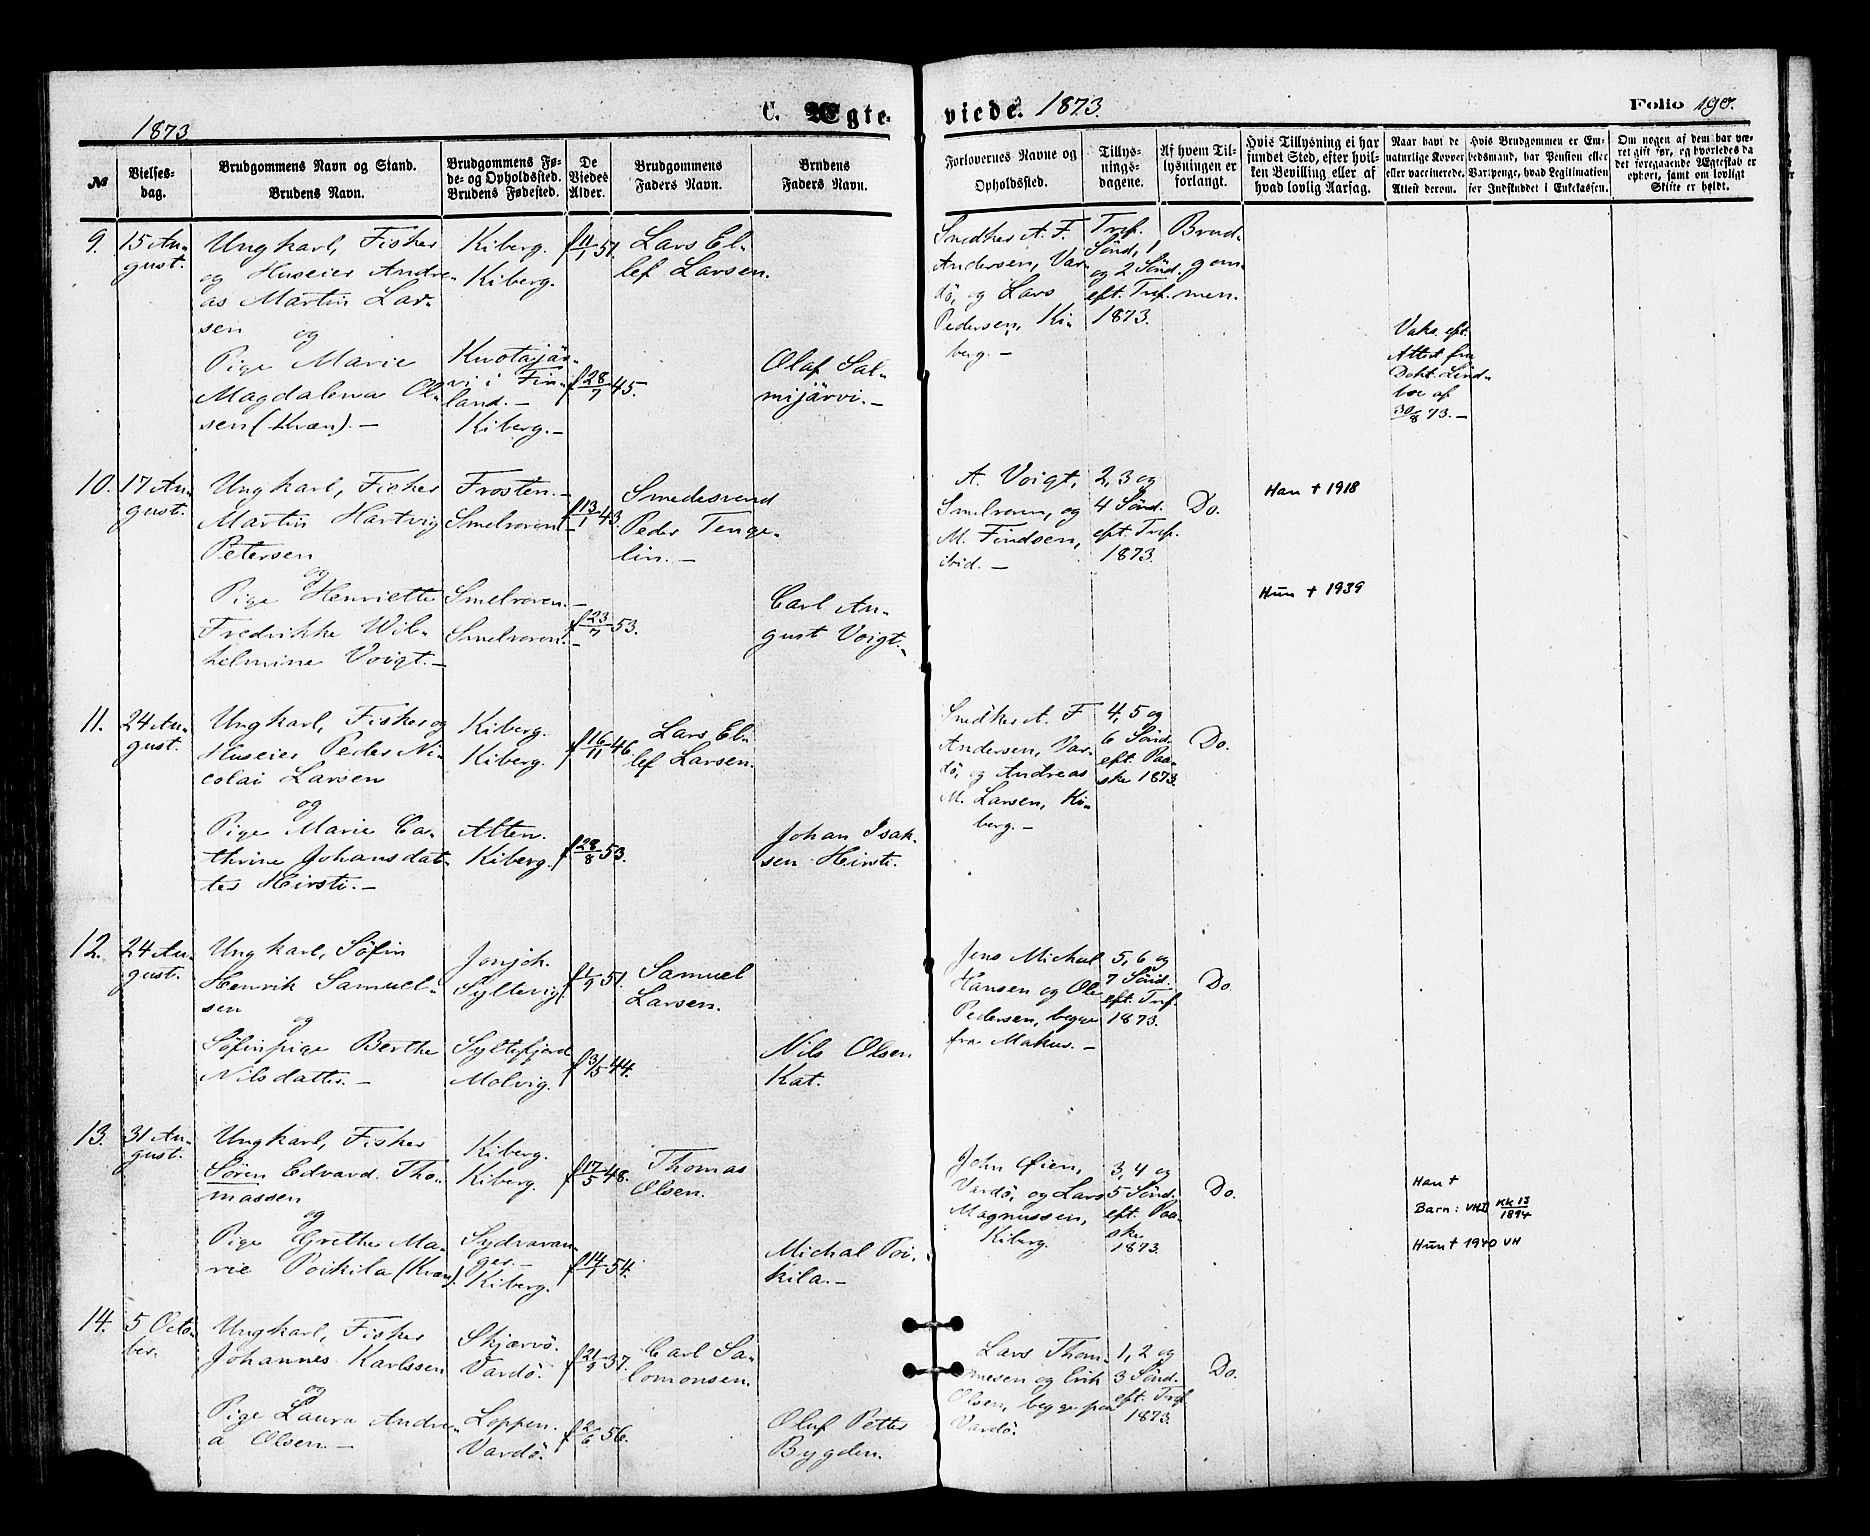 1873.
C. Ægte-
viede. 1873.
Folio 190.
№
Vielses-
dag.
Brudgommens Navn og Stand.
Brudens Navn.
Brudgommens Fø-
de- og Opholdssted.
Brudens Fødested.
De
Viedes
Alder.
Brudgommens
Faders Navn.
Brudens
Faders Navn.
Forlovernes Navne og
Opholdssted.
Tillys-
nings-
dagene.
Af hvem Til-
lysningen er
forlangt.
Hvis Tillysning ei har
fundet Sted, efter hvil-
ken Bevilling eller af
hvad lovlig Aarsag.
Naar havt de
naturlige Kopper
eller vaccinerede.
Attest derom.
Hvis Brudgommen er En-
bedsmand, har Pension eller
Vartpenge, hvad Legitimation
for Indskuddet i Enkekassen.
Om nogen af dem har væ-
ret gift før, og hvorledes da
det foregaaende Ægteskab er
ophørt, samt om lovligt
Skifte er holdt.
9.
15 Au-
gust.
Ungkarl, Fisker
og Huseier Andre-
as Martin Lar-
sen
og
Pige Marie
Magdalena Ol-
sen (Kvæn). -
Kiberg.
Kiberg.
Kuotajär-
vi i Fin-
land. -
Kiberg. -
f 11/1 51.
f 28/7 45.
Lars El-
lef Larsen.
Olaf Sal-
mijärvi. -
Snedker A. F.
Andersen, Var-
dö, og Lars
Pedersen, Ki-
berg. -
Tref.
Sönd, 1
og 2 Sönd.
eft. Tref.
1873.
Brud-
gom-
men.
Vaks. eft.
Attest fra
Dokt. Lind-
boe af
30/8 73. -
10.
17 Au-
gust.
Ungkarl, Fisker
Martin Hartvig
Petersen
og
Pige Henriette
Fredrikke Wil-
helmine Voigt. -
Frosten. -
Smelroren. -
Smelroren. -
Smelroren. -
f 13/1 43.
f 23/7 53.
Smedesvend
Peder Tenge-
lin. -
Carl Au-
gust Voigt. -
A. Voigt,
Smelroren, og
M. Findsen,
ibid. -
2, 3 og
4 Sönd.
eft. Tref.
1873.
Do.
Han † 1918
Hun † 1939
11.
24 Au-
gust.
Ungkarl, Fisker og
Huseier Peder Ni-
colai Larsen
og
Pige Marie Ca-
thrine Johansdat-
ter Heirsti. -
Kiberg.
Kiberg.
Alten.
Kiberg.
f 16/11 46.
f 28/8 53.
Lars El-
lef Larsen.
Johan Isak-
sen Heirsti.
Snedker A. F
Andersen, Var-
dö, og Andreas
M. Larsen, Ki-
berg. -
4, 5 og
6 Sönd.
eft. Paa-
ske 1873.
Do.
12.
24 Au-
gust.
Ungkarl, Söfin
Henrik Samuel-
sen
og
Söfinpige Berthe
Nilsdatter. -
Syltevig.
Syltefjord
Molvig.
f 1/9 51.
f 3/5 44.
Samuel
Larsen.
Nils Olsen
Kat.
Jens Michal
Hansen og Ole
Pedersen, begge
fra Makur. -
5, 6 og
7 Sönd.
eft. Tref.
1873.
Do.
13.
31 Au-
gust.
Ungkarl, Fisker
Sören Edvard Tho-
massen
og
Pige Grethe Ma-
rie Poikila (Kvæn).
Kiberg.
Kiberg.
Sydvaran-
ger. -
Kiberg.
f 17/5 48.
f 14/1 54.
Thomas
Olsen.
Michal Poi-
kila. -
John Øien,
Vardö, og Lars
Magnussen,
Kiberg.
3, 4 og
5 Sönd.
eft. Paa-
ske
1873.
Do.
Han †
Barn: VHI KK 13/1894
Hun † 1940 VH
14.
5 Octo-
ber.
Ungkarl, Fisker
Johannes Karlssen
og
Pige Laura Andre-
a Olsen. -
Skjærvö.
Vardö.
Loppen.
Vardö.
f 21/9 37.
f 2/6 56.
Carl Sa-
lomonsen.
Oluf Petter
Bygden.
Lars Thom-
mesen og Erik
Olsen, begge paa
Vardö.
1, 2 og
3 Sönd.
eft. Tref.
1873.
Do.